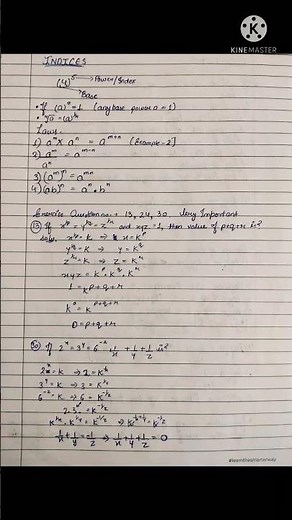 KINEMASTER
INDICES
(4)⁵ → Power/Index
Base
• If (a)⁰ = 1 (any base power 0 = 1)
• ⁿ√a = (a)^1/n
Laws -
1) aᵐ × aⁿ = a^m+n (Example - 2)
2) aᵐ = a^m-n
aⁿ
3) (aᵐ)ⁿ = a^mn
4) (ab)ⁿ = aⁿ . bⁿ
Exercise Questions → 13, 24, 30 Very Important
(13) If x^1/p = y^1/q = z^1/r and xyz = 1, then value of p+q+r is?
solu. x^1/p = K ⇒ x = K^p
y^1/q = K ⇒ y = K^q
z^1/r = K ⇒ z = K^r
xyz = K^p . K^q . K^r
1 = K^p+q+r
K⁰ = K^p+q+r
0 = p+q+r
(30) If 2^x = 3^y = 6^-z, 1/x + 1/y + 1/z is?
2^x = K ⇒ 2 = K^1/x
3^y = K ⇒ 3 = K^1/y
6^-z = K ⇒ 6 = K^-1/z
2.3 = K^-1/z
K^1/x . K^1/y = K^-1/z ⇒ K^1/x+1/y = K^-1/z
1/x + 1/y = -1/z ⇒ 1/x + 1/y + 1/z = 0